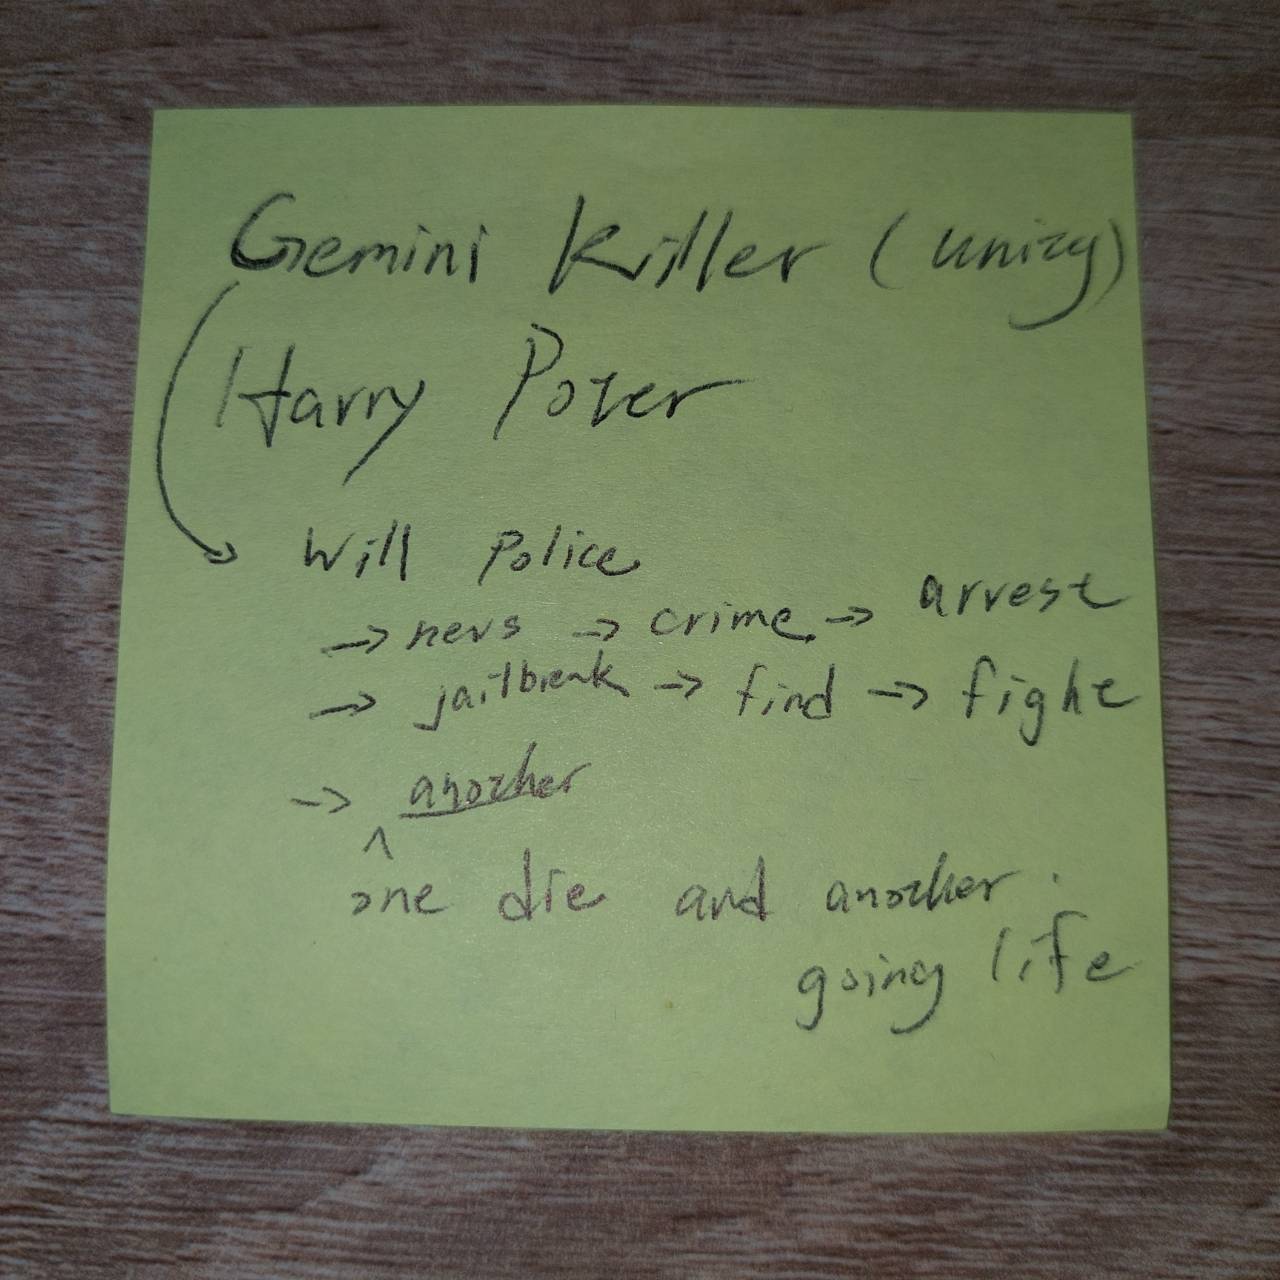 Gemini Killer (unity)
Harry Poter
Will Police
→ news → crime → arrest
→ jailbreak → find → fight
→ another
^
one die and another
going life